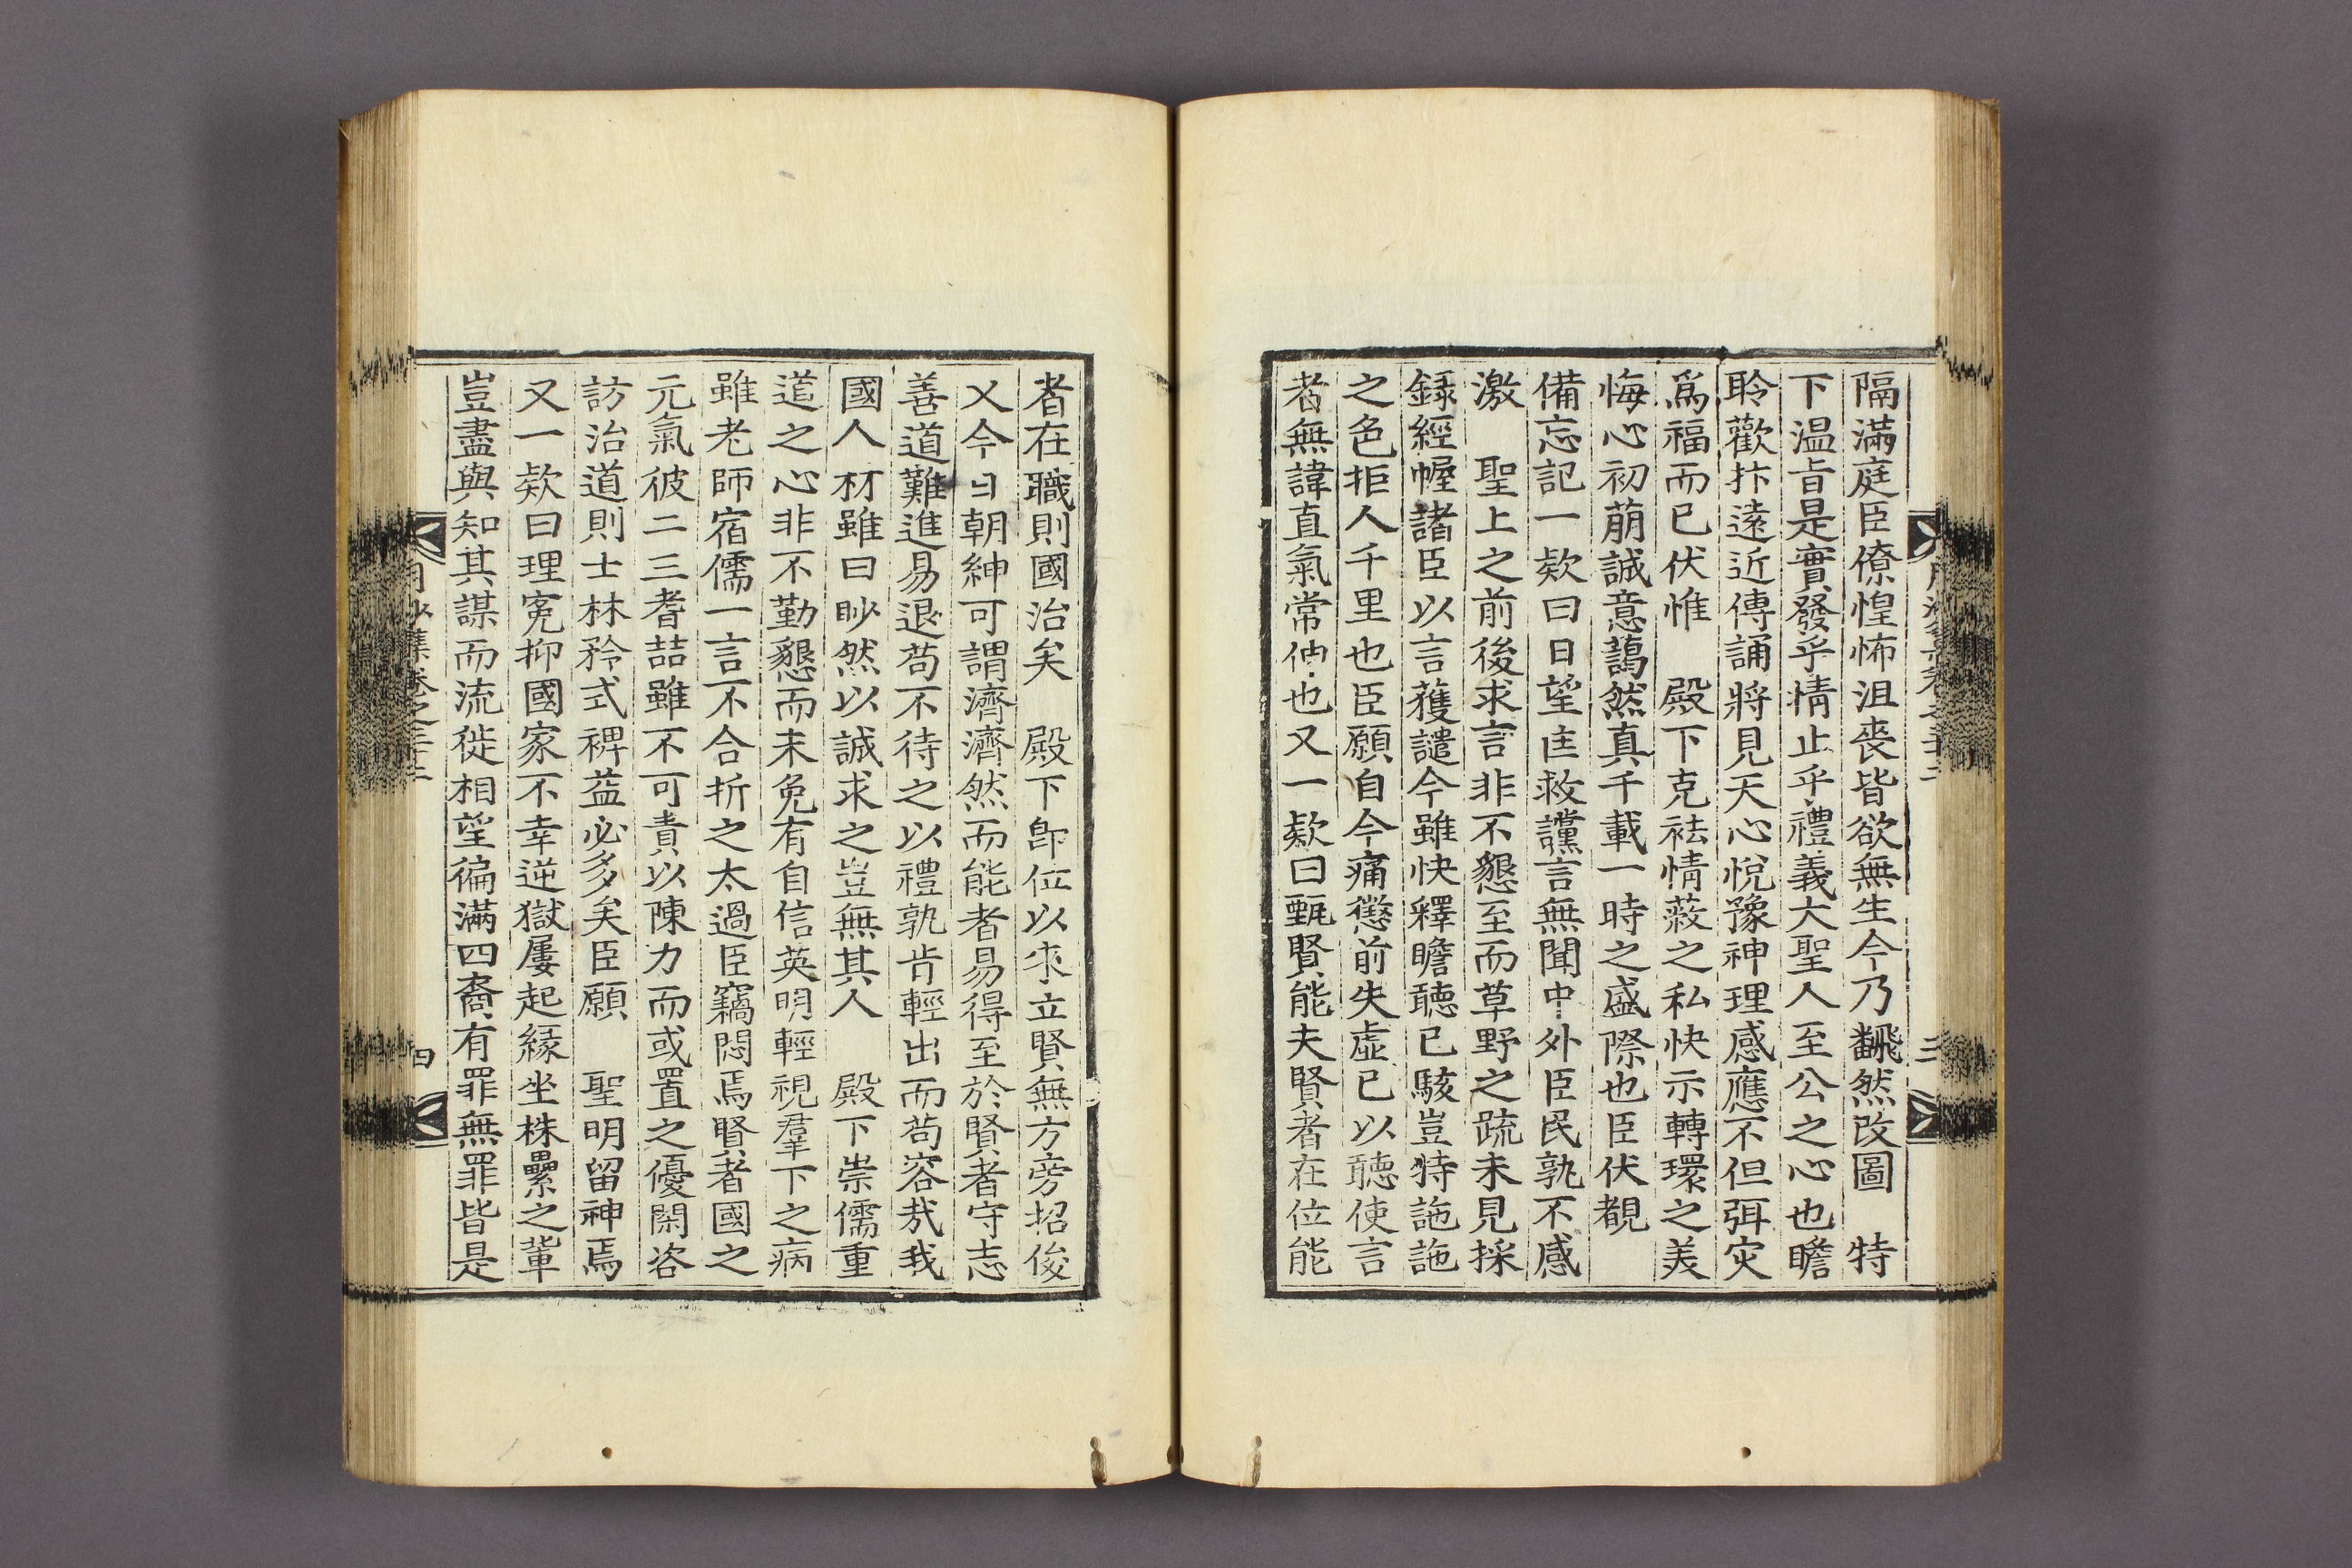 隔滿庭臣僚惶怖沮喪皆欲無生今乃飜然改圖　特
下温旨是實發乎情止乎禮義大聖人至公之心也瞻
聆歡抃遠近傳誦將見天心悅豫神理感應不但弭灾
爲福而已伏惟　殿下克祛情蔽之私快示轉環之美
悔心初萠誠意藹然真千載一時之盛際也臣伏覩
備忘記一欵曰日望匡救讜言無聞中外臣民孰不感
激　聖上之前後求言非不懇至而草野之疏未見採
録經幄諸臣以言獲譴今雖快釋瞻聽已駭豈特訑訑
之色拒人千里也臣願自今痛懲前失虛已以聽使言
者無諱直氣常伸也又一欵曰甄賢能夫賢者在位能
三
者在職則國治矣　殿下卽位以來立賢無方旁招俊
乂今日朝紳可謂濟濟然而能者易得至於賢者守志
善道難進易退苟不待之以禮孰肯輕出而苟容㢤我
國人材雖曰眇然以誠求之豈無其人　殿下崇儒重
道之心非不勤懇而未免有自信英明輕視羣下之病
雖老師宿儒一言不合折之太過臣竊悶焉賢者國之
元氣彼二三耆喆雖不可責以陳力而或置之優閑咨
訪治道則士林矜式裨益必多矣臣願　聖明留神焉
又一欵曰理寃抑國家不幸逆獄屢起緣坐株纍之軰
豈盡與知其謀而流徙相望徧滿四裔有罪無罪皆是
月沙集卷之三十二
四